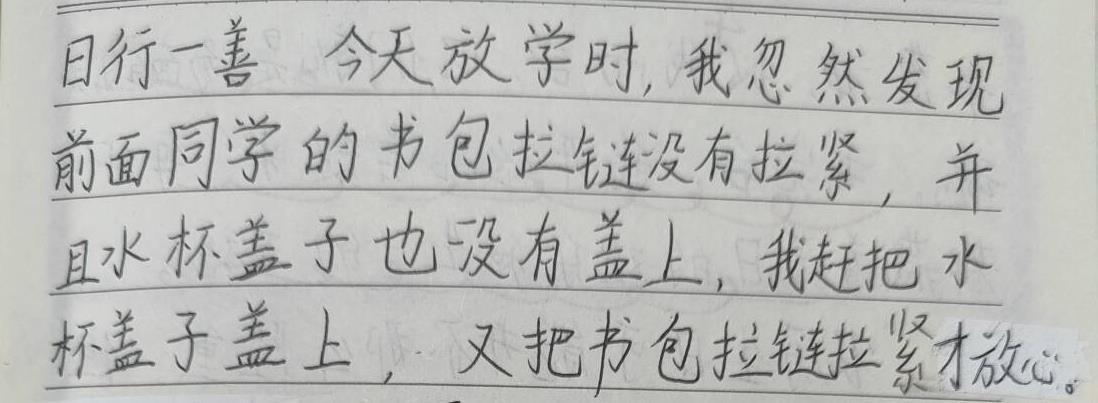 日行一善 今天放学时,我忽然发现
前面同学的书包拉链没有拉紧,并
且水杯盖子也没有盖上,我赶把水
杯盖子盖上,又把书包拉链拉紧才放心。